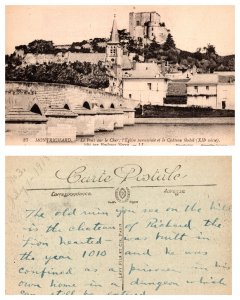 27 MONTRICHARD. — Le Pont sur le Cher; l'Église paroissiale et le Château féodal (XIe siècle).
Carte Postale
Correspondance
Adresse
The old ruin you see on the hill
is the chateau of Richard, the
Lion hearted - was built in
the year 1010 and he was
confined as a prisoner in his
own home in a dungeon which